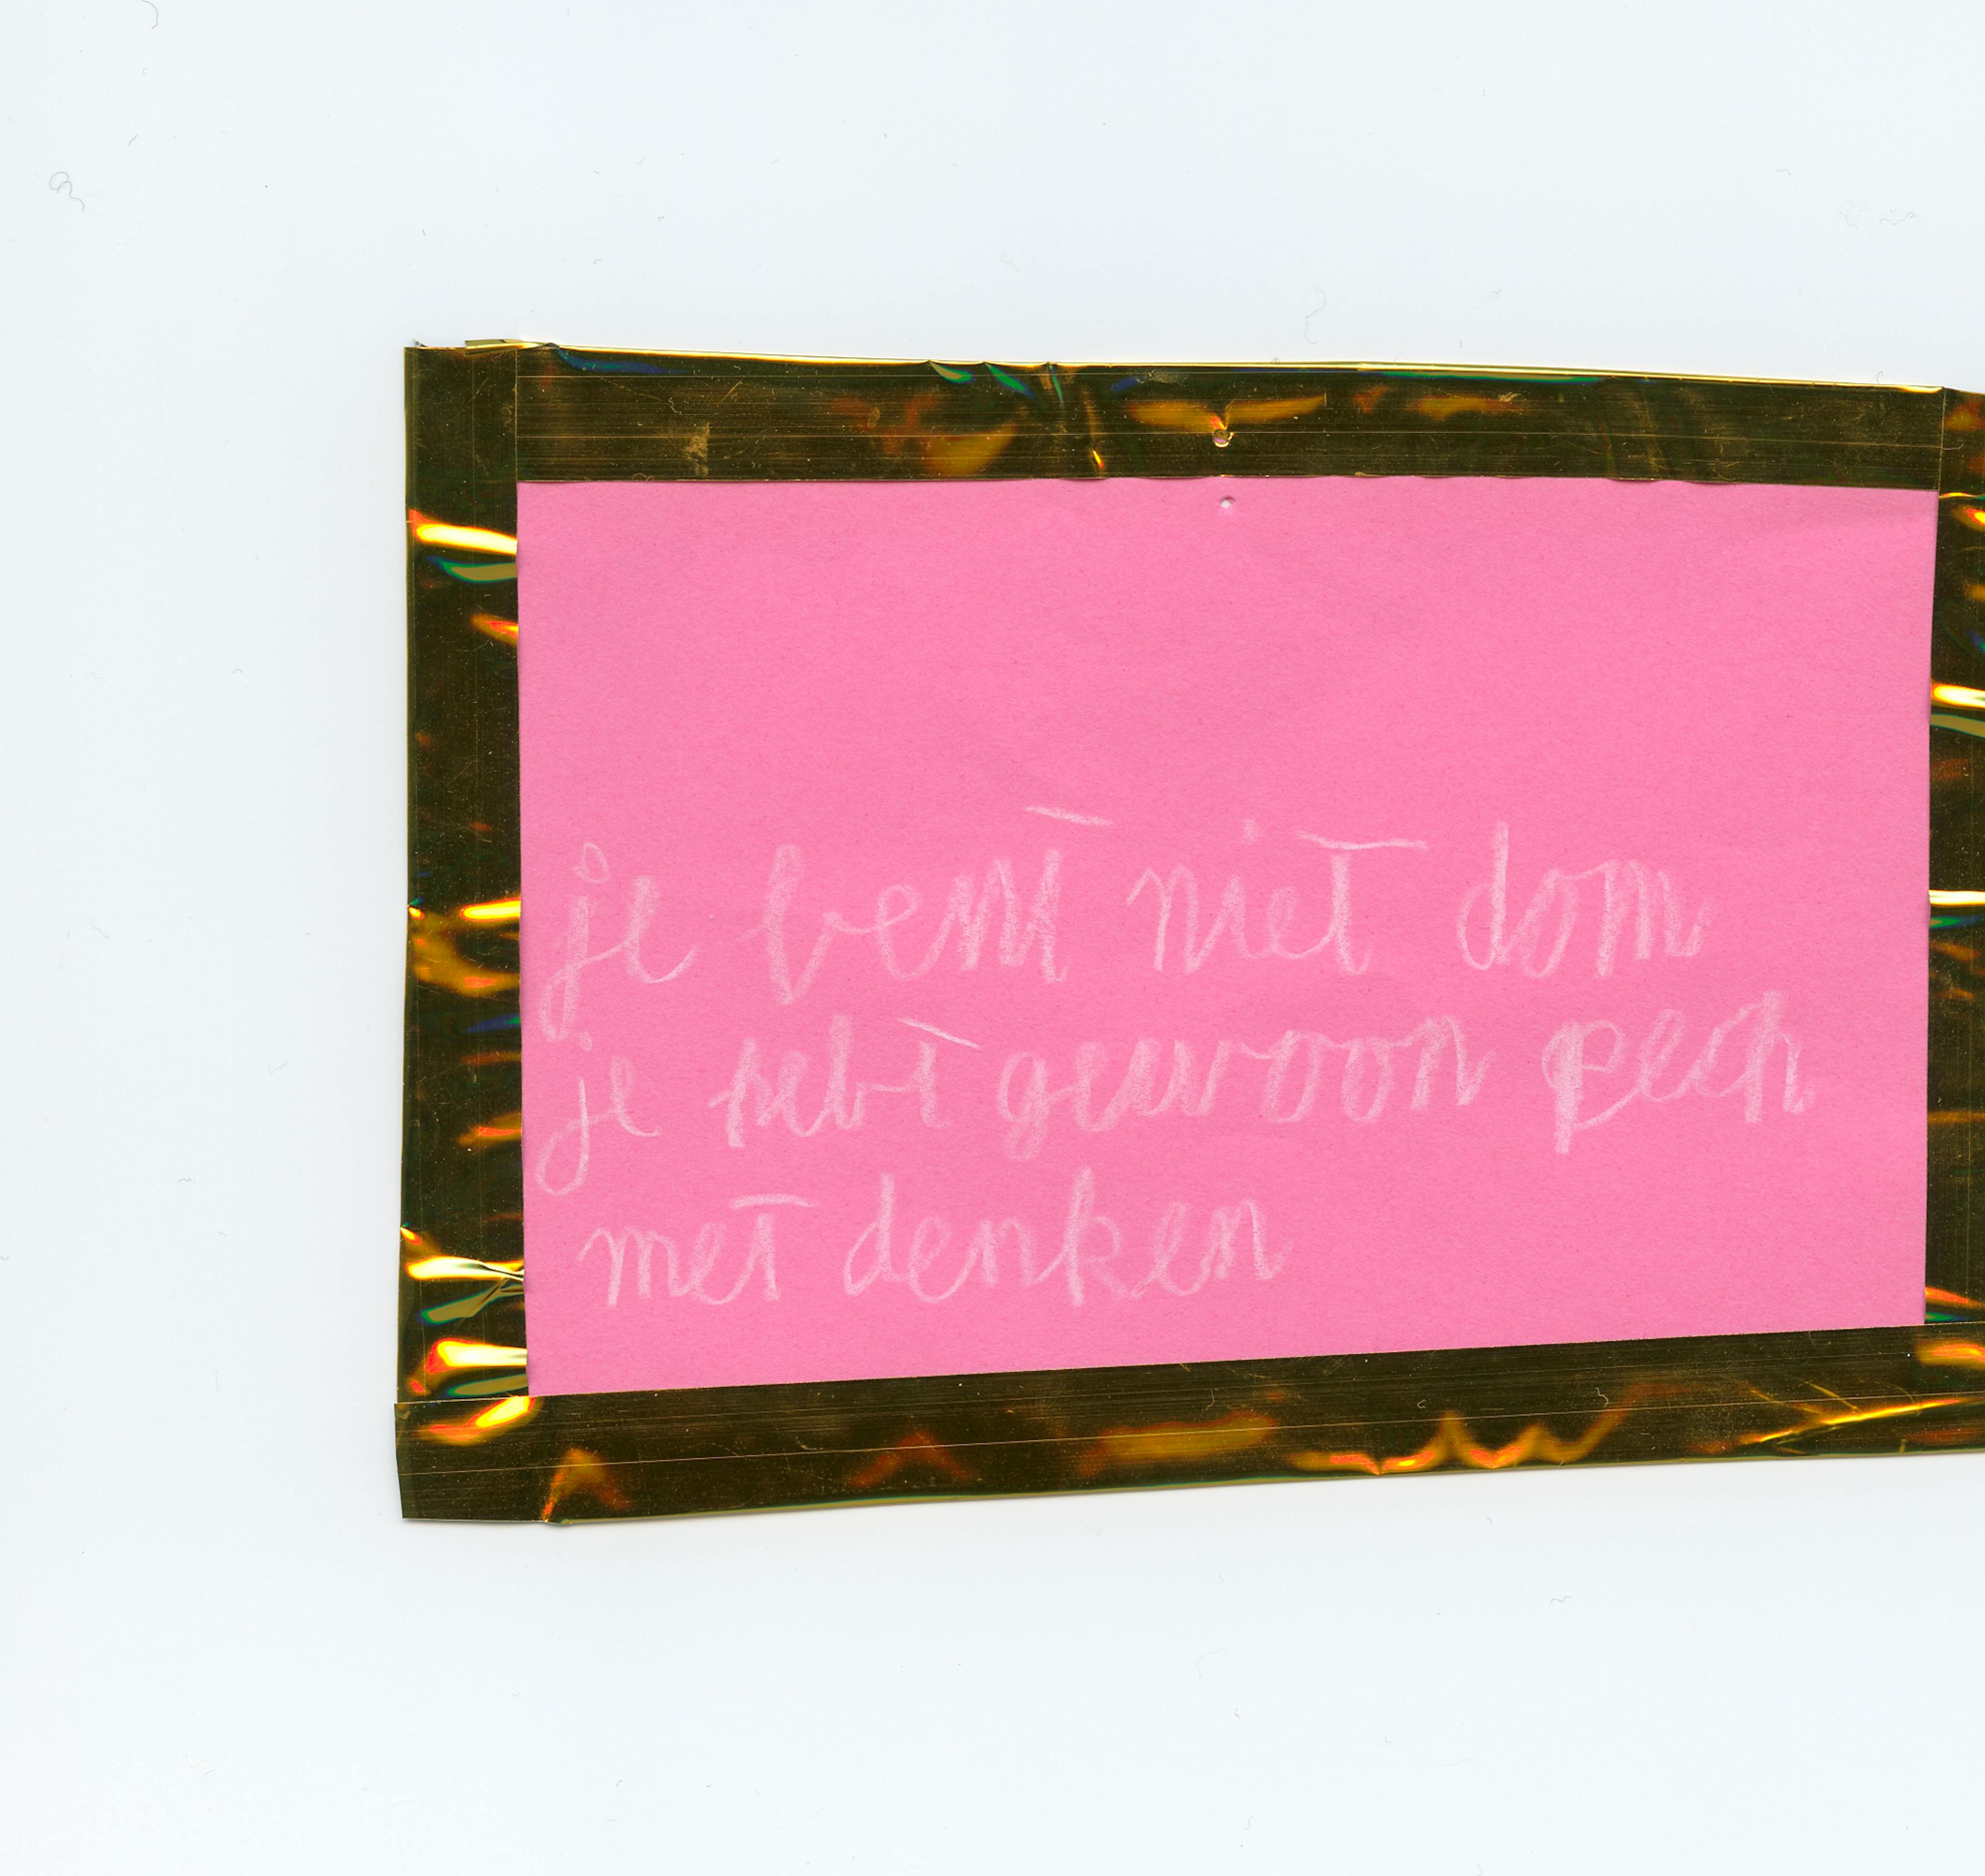 je bent niet dom
je hebt gewoon pech
met denken